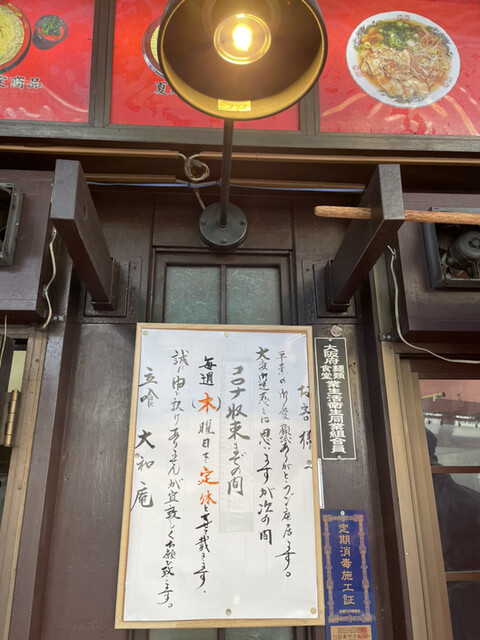 定商品
夏
お客様へ
平素の御愛顧ありがとうご座居ます。
大変御迷惑とは思いますが次の間
コロナ収束までの間
毎週(木)曜日を定休と させて戴きます。
誠に申し訳ありませんが宜敷しくお願い致します。
立喰 大和庵
大阪府麺類食堂業生活衛生同業組合員
定期消毒施工証